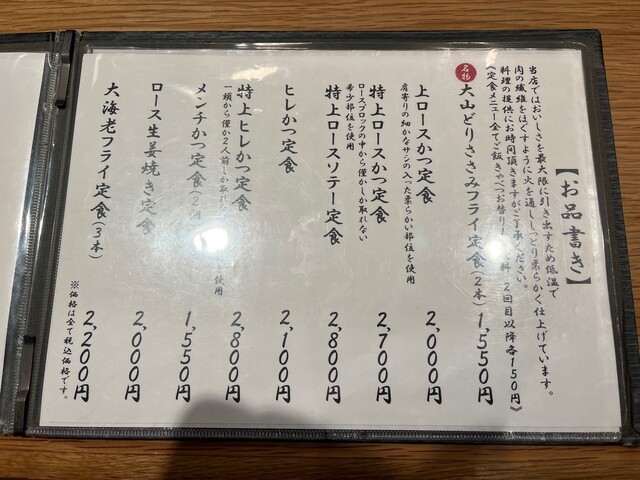 【お品書き】
当店ではおいしさを最大限に引き出すため低温で
肉の繊維をほぐすように火を通ししっとり柔らかく仕上げています。
料理の提供にお時間頂きますがご了承ください。
《定食メニュー全てご飯きゃべつお替り 料 2回目以降各150円》
名物 大山どりささみフライ定食(2本) 1,550円
上ロースかつ定食 2,000円
肩寄りの細かなサシの入った柔らかい部位を使用
特上ロースかつ定食 2,700円
ロースブロックの中から僅かしか取れない
希少部位を使用
特上ロースソテー定食 2,800円
ヒレかつ定食 2,100円
特上ヒレかつ定食 2,800円
一頭から僅か2人前しか取れな 使用
メンチかつ定食(2 1,550円
ロース生姜焼き定食 2,000円
大海老フライ定食(3本) 2,200円
※価格は全て税込価格です。